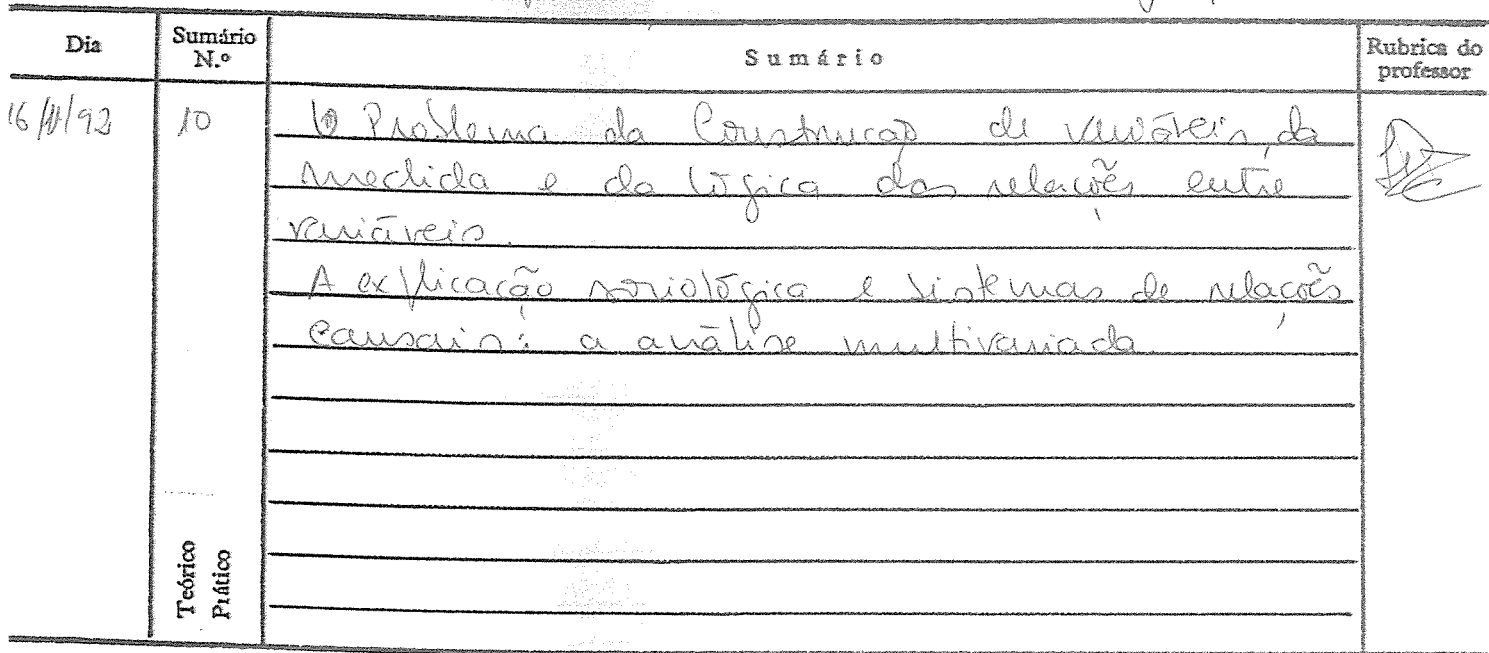 Dia Sumário N.º Sumário Rubrica do professor
16/11/92 10 O Problema da Construção de variáveis, da
medida e da lógica das relações entre
variáveis.
A explicação sociológica e sistemas de relações
causais: a análise multivariada
Teórico
Prático